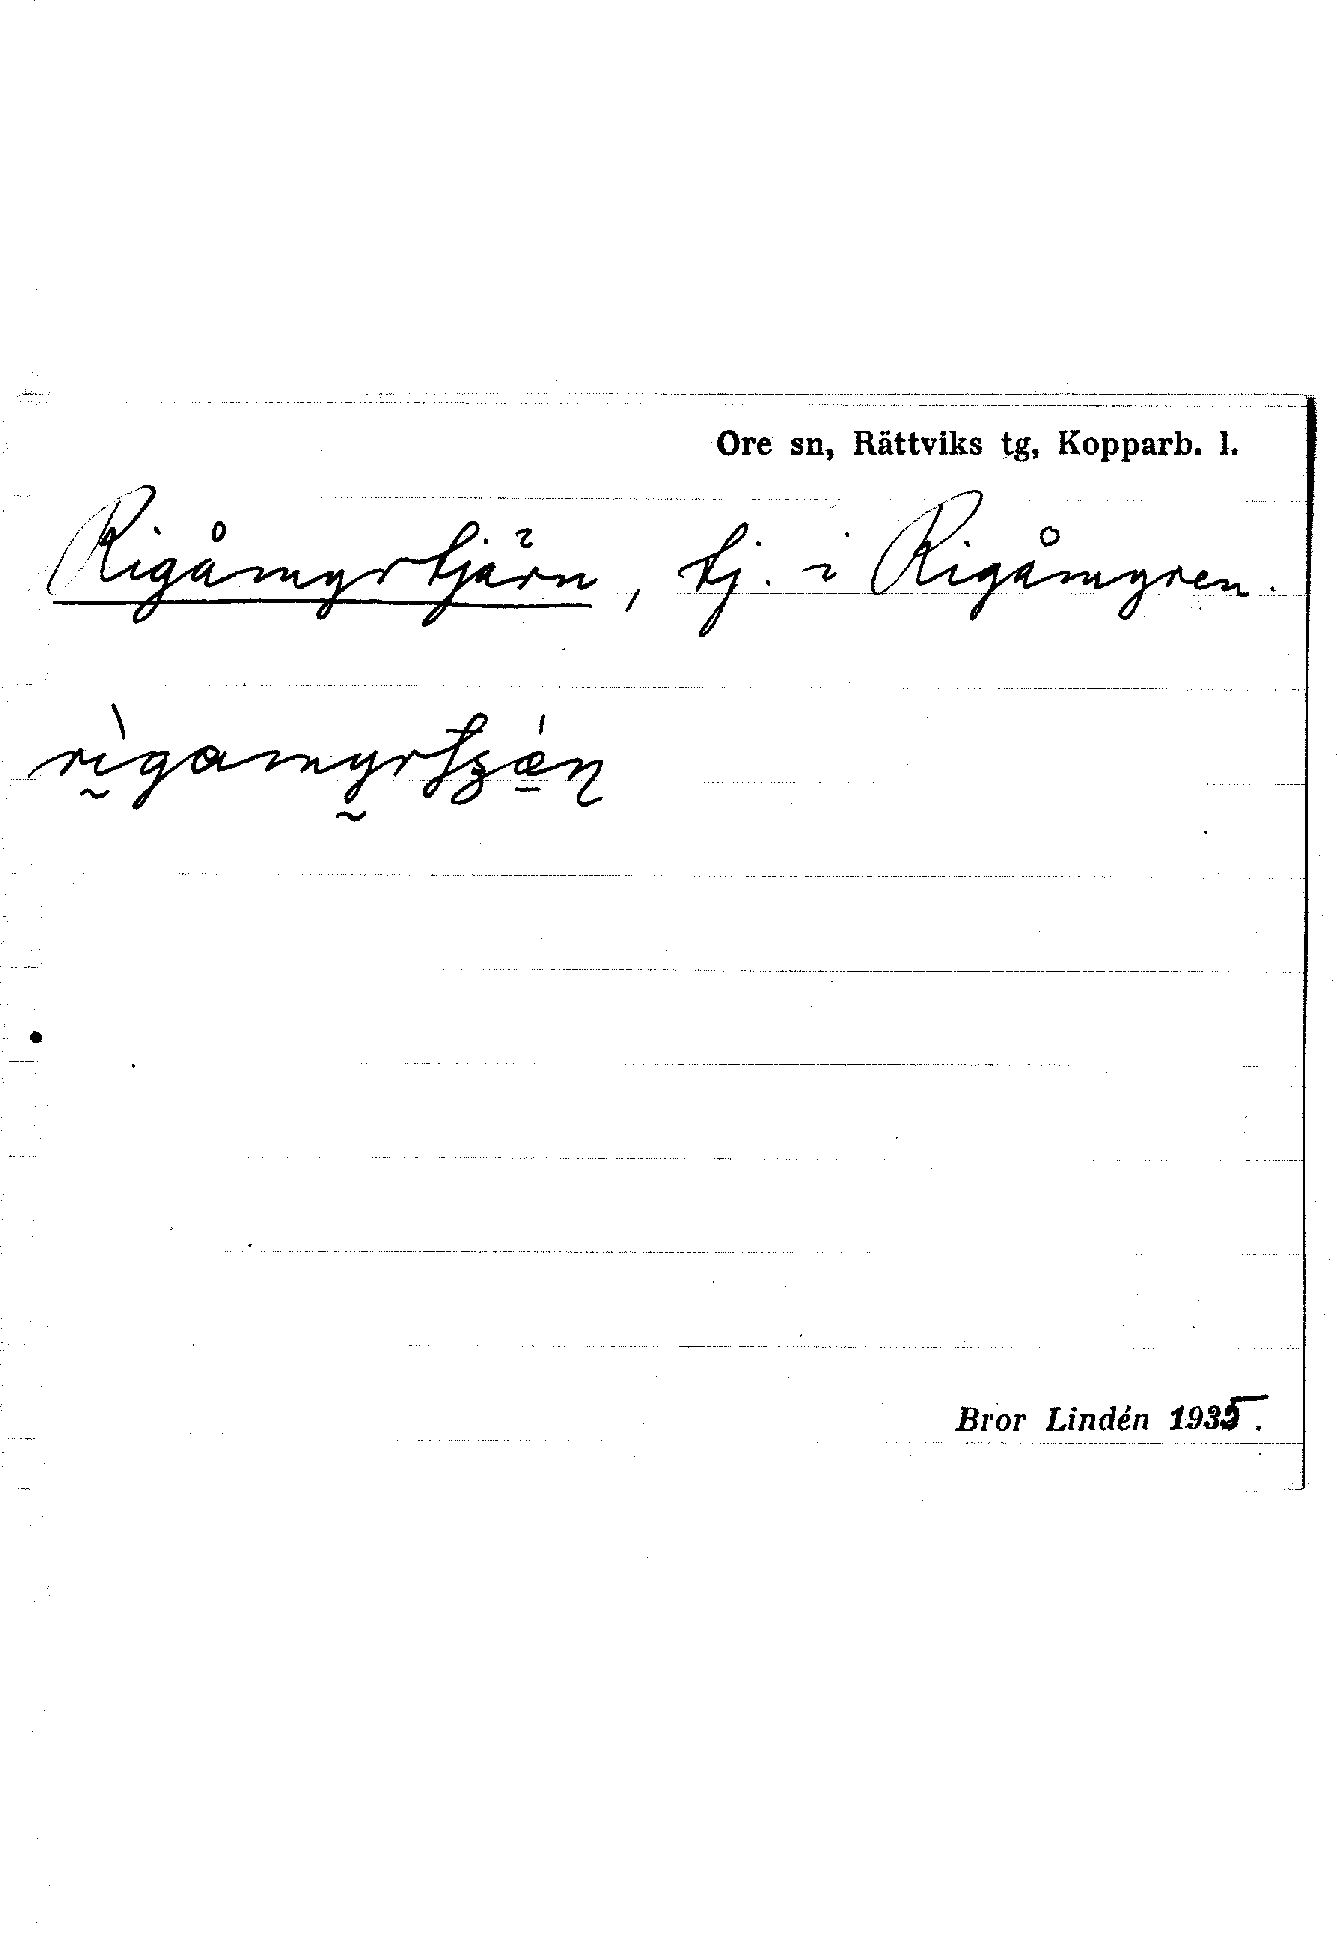 Ore sn, Rättviks tg, Kopparb. l.
Rigåmyrtjärn, tj. i Rigåmyren.
rìgamyrtʒǽɳ
Bror Lindén 1935.